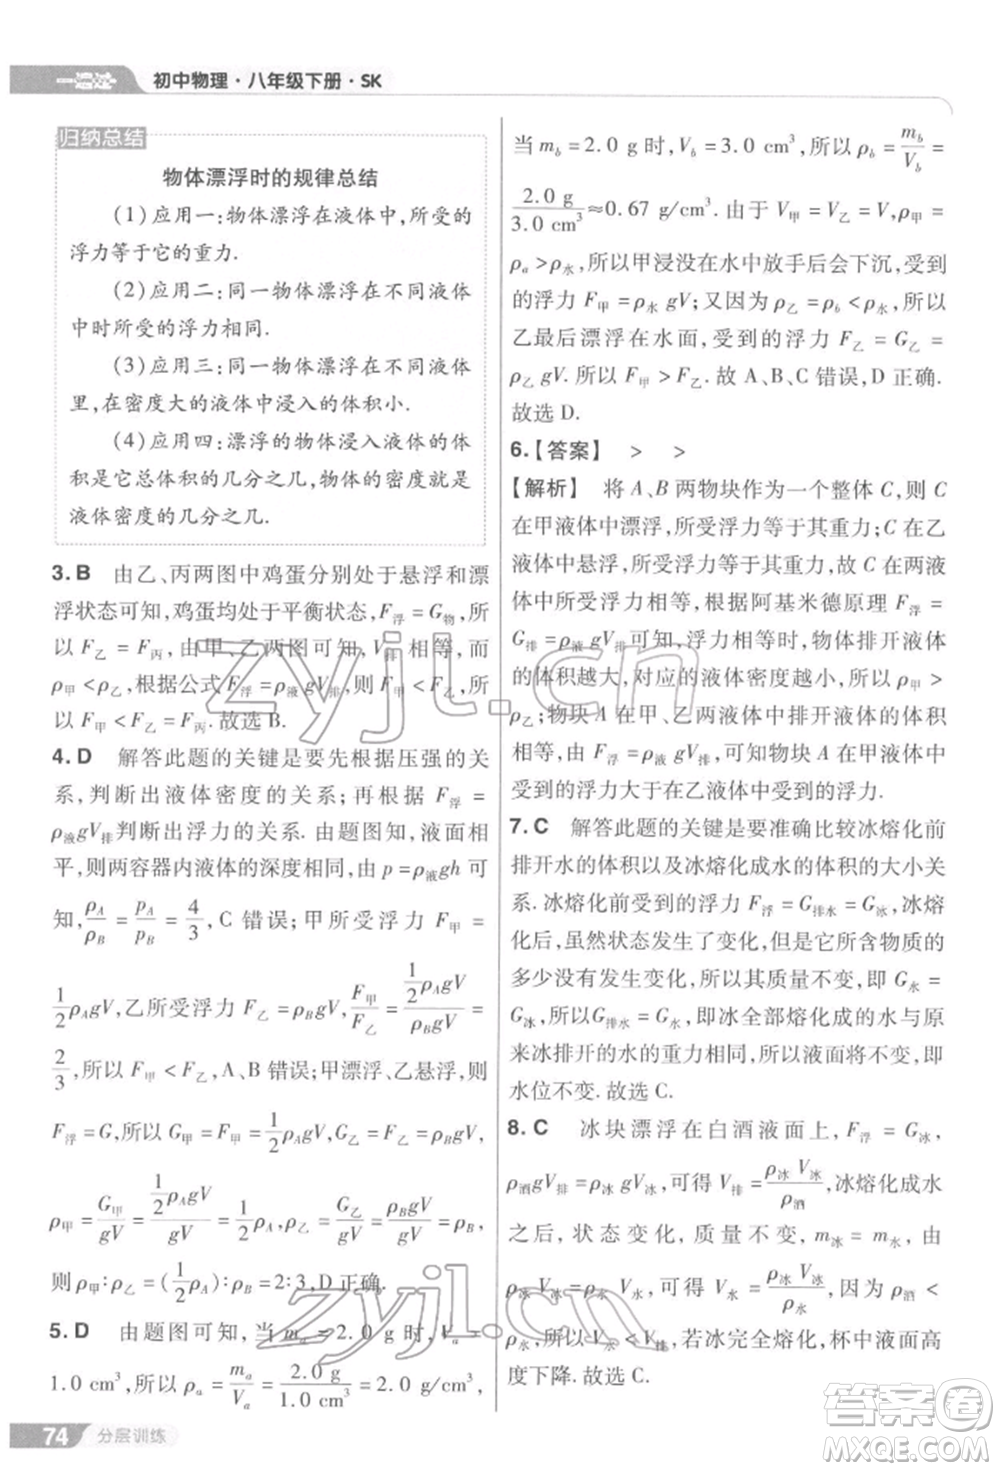 一遍过
初中物理·八年级下册·SK
归纳总结
物体漂浮时的规律总结
(1)应用一:物体漂浮在液体中,所受的
浮力等于它的重力.
(2)应用二:同一物体漂浮在不同液体
中时所受的浮力相同.
(3)应用三:同一物体漂浮在不同液体
中,在密度大的液体中浸入的体积小.
(4)应用四:漂浮的物体浸入液体的体
积是它总体积的几分之几,物体密度就是
液体密度的几分之几.
3. B 由乙、丙两图中鸡蛋分别处于悬浮和漂
浮状态可知,鸡蛋均处于平衡状态,F浮=G物,所
以 F乙=F丙,由甲、乙两图可知,V排 相等,而
ρ甲<ρ乙,根据公式 F浮=ρ液gV排 可知 F甲<F乙,所
以 F甲<F乙=F丙.故选 B.
4. D 解答此题的关键是要先根据压强的关
系,判断出液体密度的关系;再根据 F浮=
ρ液gV排判断出浮力的关系. 由题图可知,液面相
平,则两容器内液体的深度相同,由 p=ρ液gh 可
知,ρA/ρB=pA/pB=4/3,C 错误;甲所受浮力 F甲=
1/2ρAgV,乙所受浮力 F乙=ρBgV,F甲/F乙=(1/2ρAgV)/(ρBgV)=
2/3,所以 F甲<F乙,A、B 错误;甲漂浮、乙悬浮,
F浮=G,所以 G甲=F甲=1/2ρAgV,G乙=F乙=ρBgV,
ρ甲=G甲/gV=(1/2ρAgV)/gV=1/2ρA,ρ乙=G乙/gV=ρBgV/gV=ρB,
则 ρ甲:ρ乙=(1/2ρA):ρB=2:3,D 正确.
5. D 由题图可知,当 ma=2.0 g 时,Va=
1.0 cm³,所以 ρa=ma/Va=2.0 g/1.0 cm³=2.0 g/cm³,
当 mb=2.0 g 时,Vb=3.0 cm³,所以 ρb=mb/Vb=
2.0 g/3.0 cm³≈0.67 g/cm³. 由于 V甲=V乙=V,ρ甲=
ρa>ρ水,所以甲浸没在水中放手后会下沉,受到
的浮力 F甲=ρ水gV;又因为 ρ乙=ρb<ρ水,所以
乙最后漂浮在水面,受到的浮力 F乙=G乙=
ρ乙gV. 所以 F甲>F乙.故 A、B、C 错误,D 正确.
故选 D.
6.【答案】 > >
【解析】 将 A、B 两物块作为一个整体 C,则 C
在甲液体中漂浮,所受浮力等于其重力;C 在乙
液体中悬浮,所受浮力等于其重力;故 C 在两液
体中所受浮力相等,根据阿基米德原理 F浮=
G排=ρ液gV排可知,浮力相等时,物体排开液体
的体积越大,对应的液体密度越小,所以 ρ甲>
ρ乙;物块 A 在甲、乙两液体中排开液体的体积
相等,由 F浮=ρ液gV排,可知物块 A 在甲液体中
受到的浮力大于在乙液体中受到的浮力.
7. C 解答此题的关键是要准确比较冰熔化前
排开水的体积以及冰熔化成水的体积的大小关
系. 冰熔化前受到的浮力 F浮=G排水=G冰,冰熔
化后,虽然状态发生了变化,但是它所含物质的
多少没有发生变化,所以质量不变,即 G水=
G冰,所以G排水=G水,即冰全部熔化成的水与原
来冰排开的水的重力相同,所以液面不变,即
水位不变.故选 C.
8. C 冰块漂浮在白酒液面上,F浮=G冰,
ρ酒gV排=ρ冰gV冰,可得 V排=ρ冰V冰/ρ酒,冰熔化成水
之后,状态变化,质量不变,m冰=m水,
ρ冰V冰=ρ水V水,可得 V水=ρ冰V冰/ρ水,因为 ρ酒<
ρ水,所以 V水<V排,若冰完全熔化,杯中液面高
度下降.故选 C.
74 分层训练
zyjl.cn
zyjl.cn
答案圈
MXQE.COM